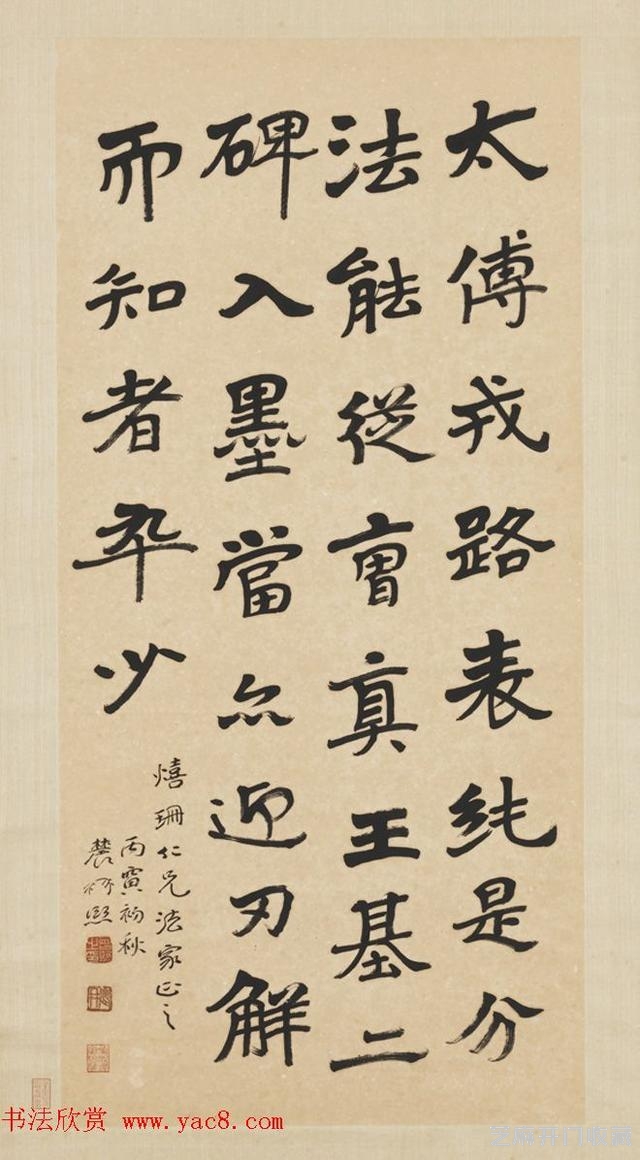 太傅戎路表純是分
法能從曹真王基二
碑入墨當亦迎刃解
而知者卒少
熺珊仁兄法家正之
丙寅初秋
農髯熙
书法欣赏 www.yac8.com